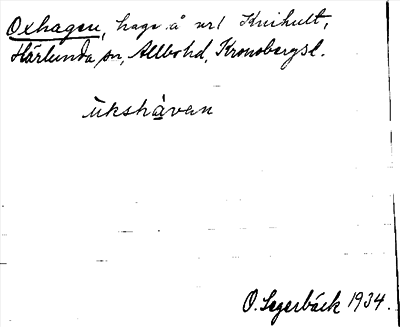 Oxhagen, hage å nr 1 Knihult,
Härlunda sn, Allbohd, Kronobergsl.
ukshàvan
O. Segerbäck 1934.